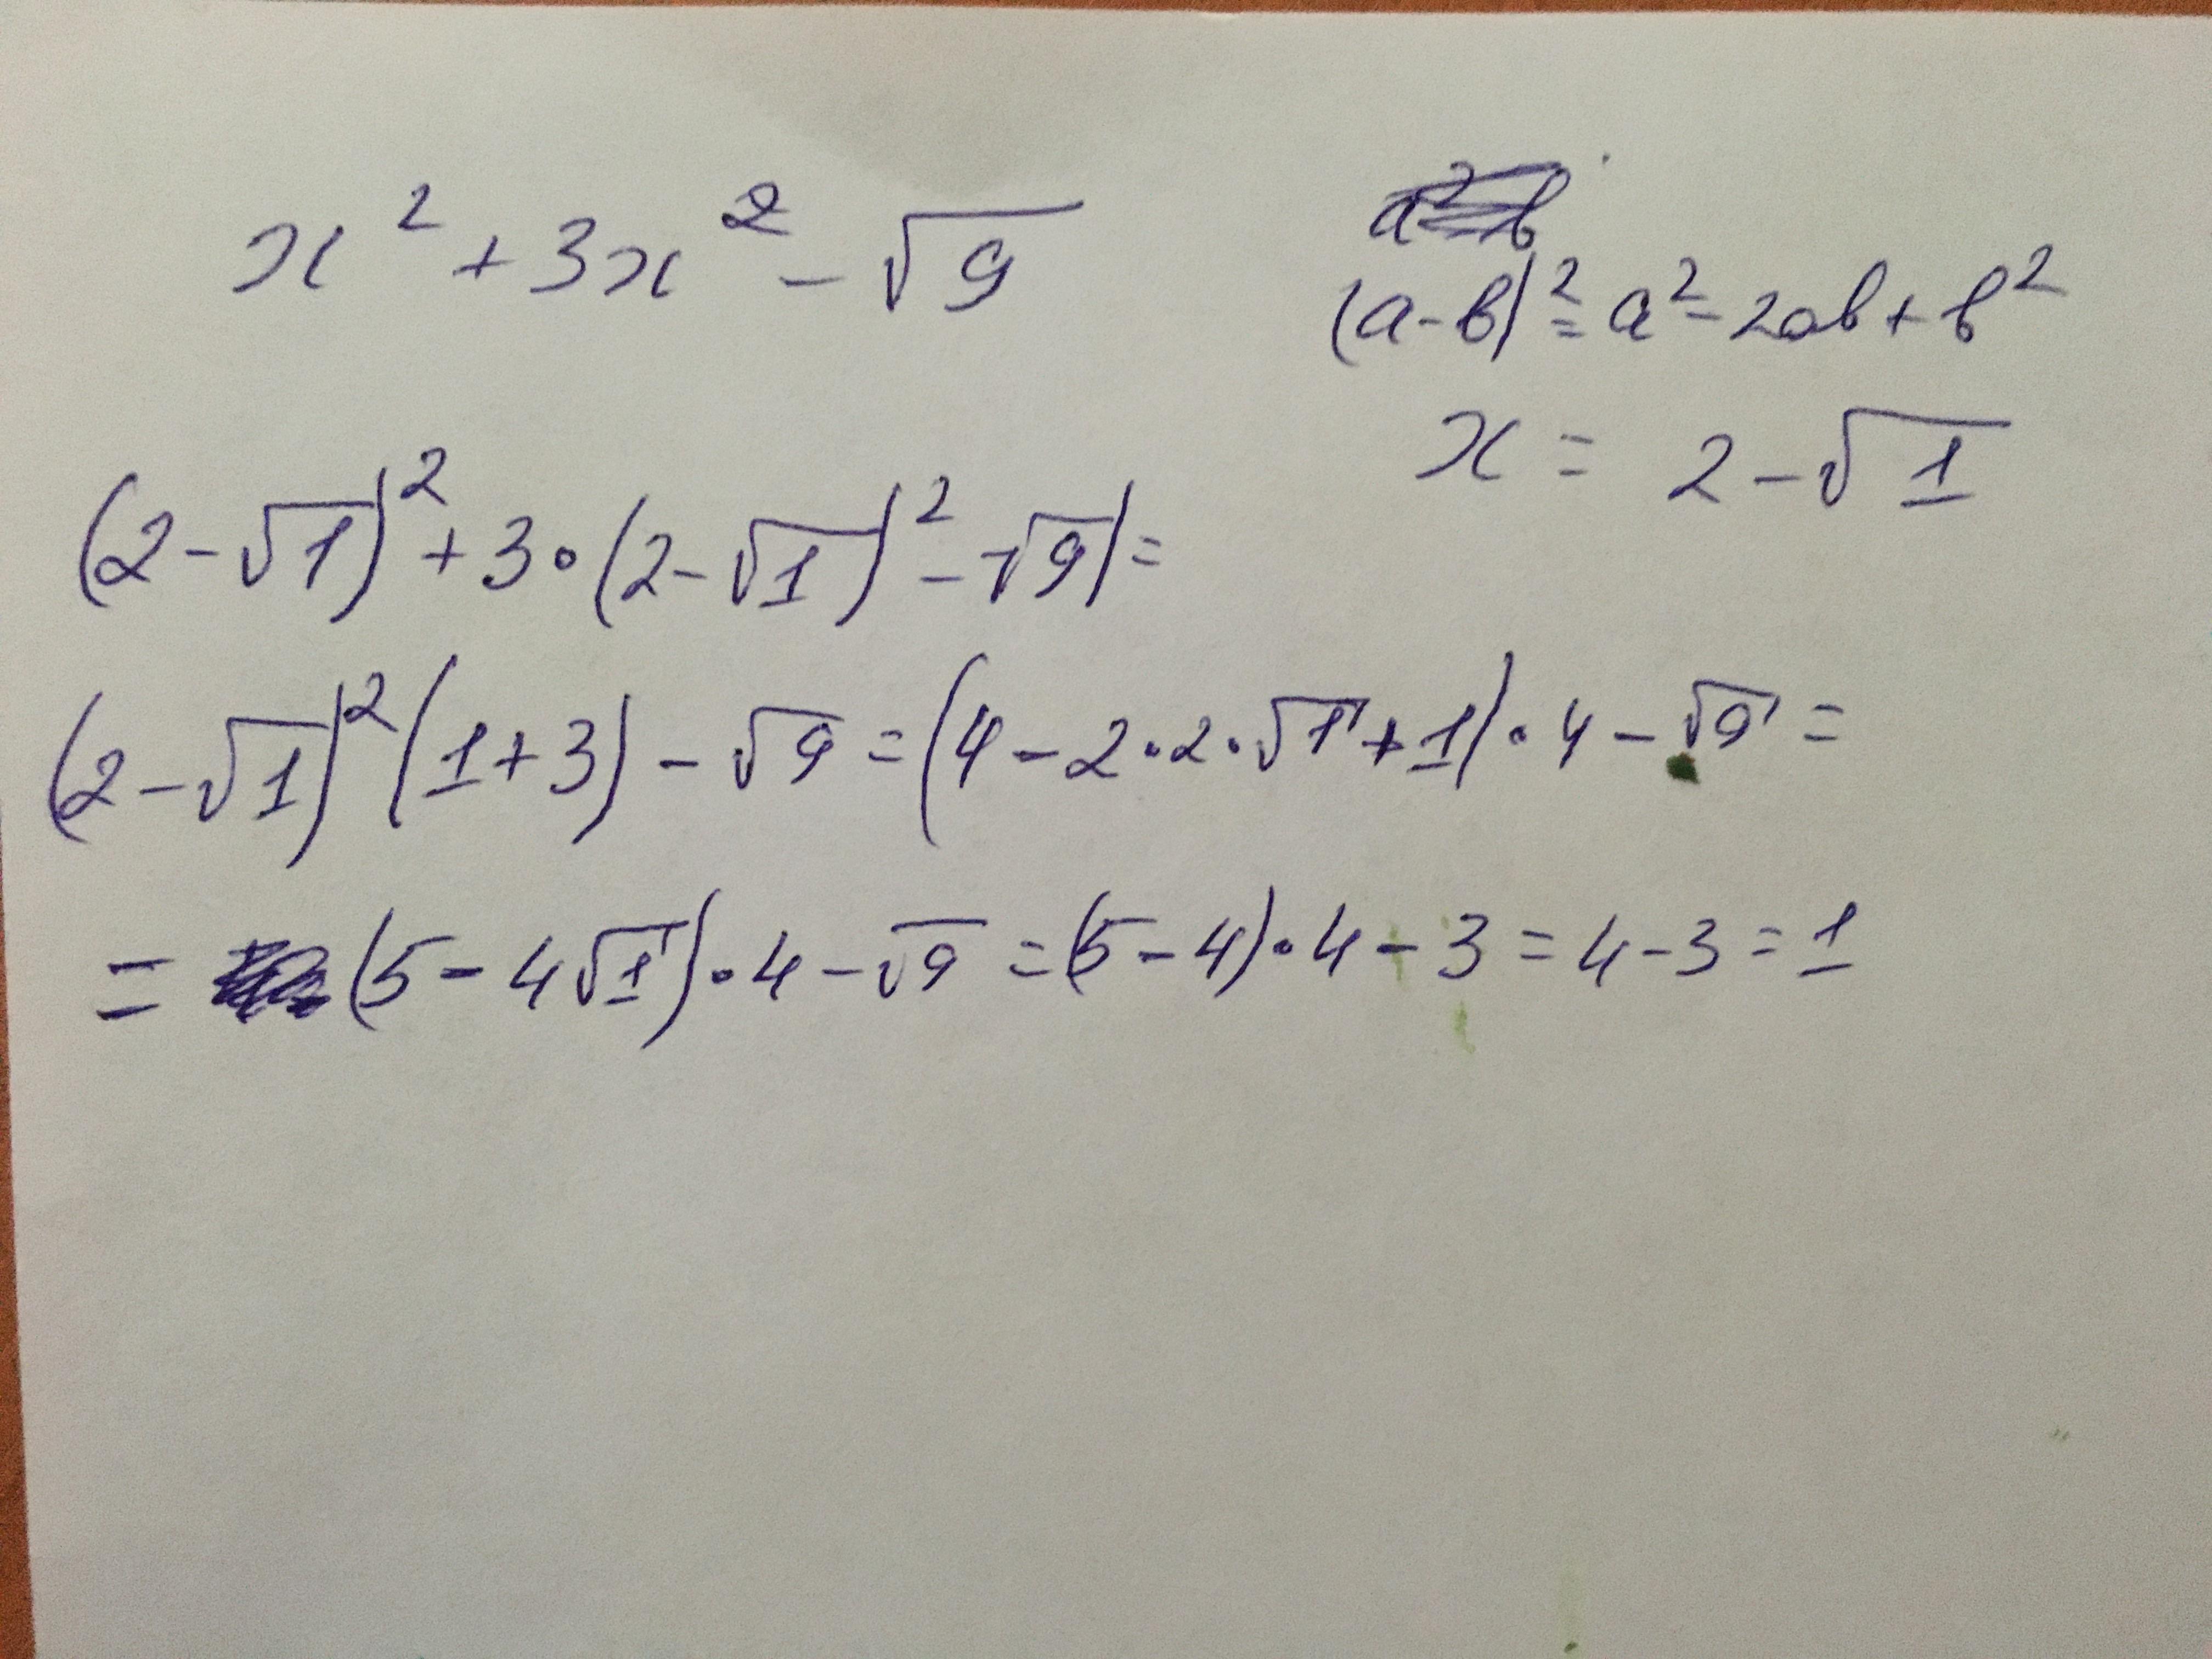 x² + 3x² - √9
(a-b)² = a² - 2ab + b²
x = 2 - √1
(2-√1)² + 3·(2-√1)² - √9) =
(2-√1)² (1+3) - √9 = (4 - 2·2·√1 + 1)·4 - √9 =
= (5 - 4√1)·4 - √9 = (5-4)·4 - 3 = 4-3 = 1